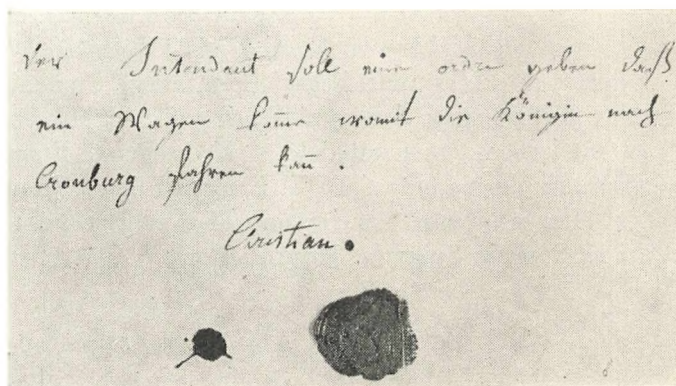 Der Intendant soll eine ordre geben daß
ein Wagen kom̅e womit die Königin nach
Cronburg fahren kan̅.
Cristian.